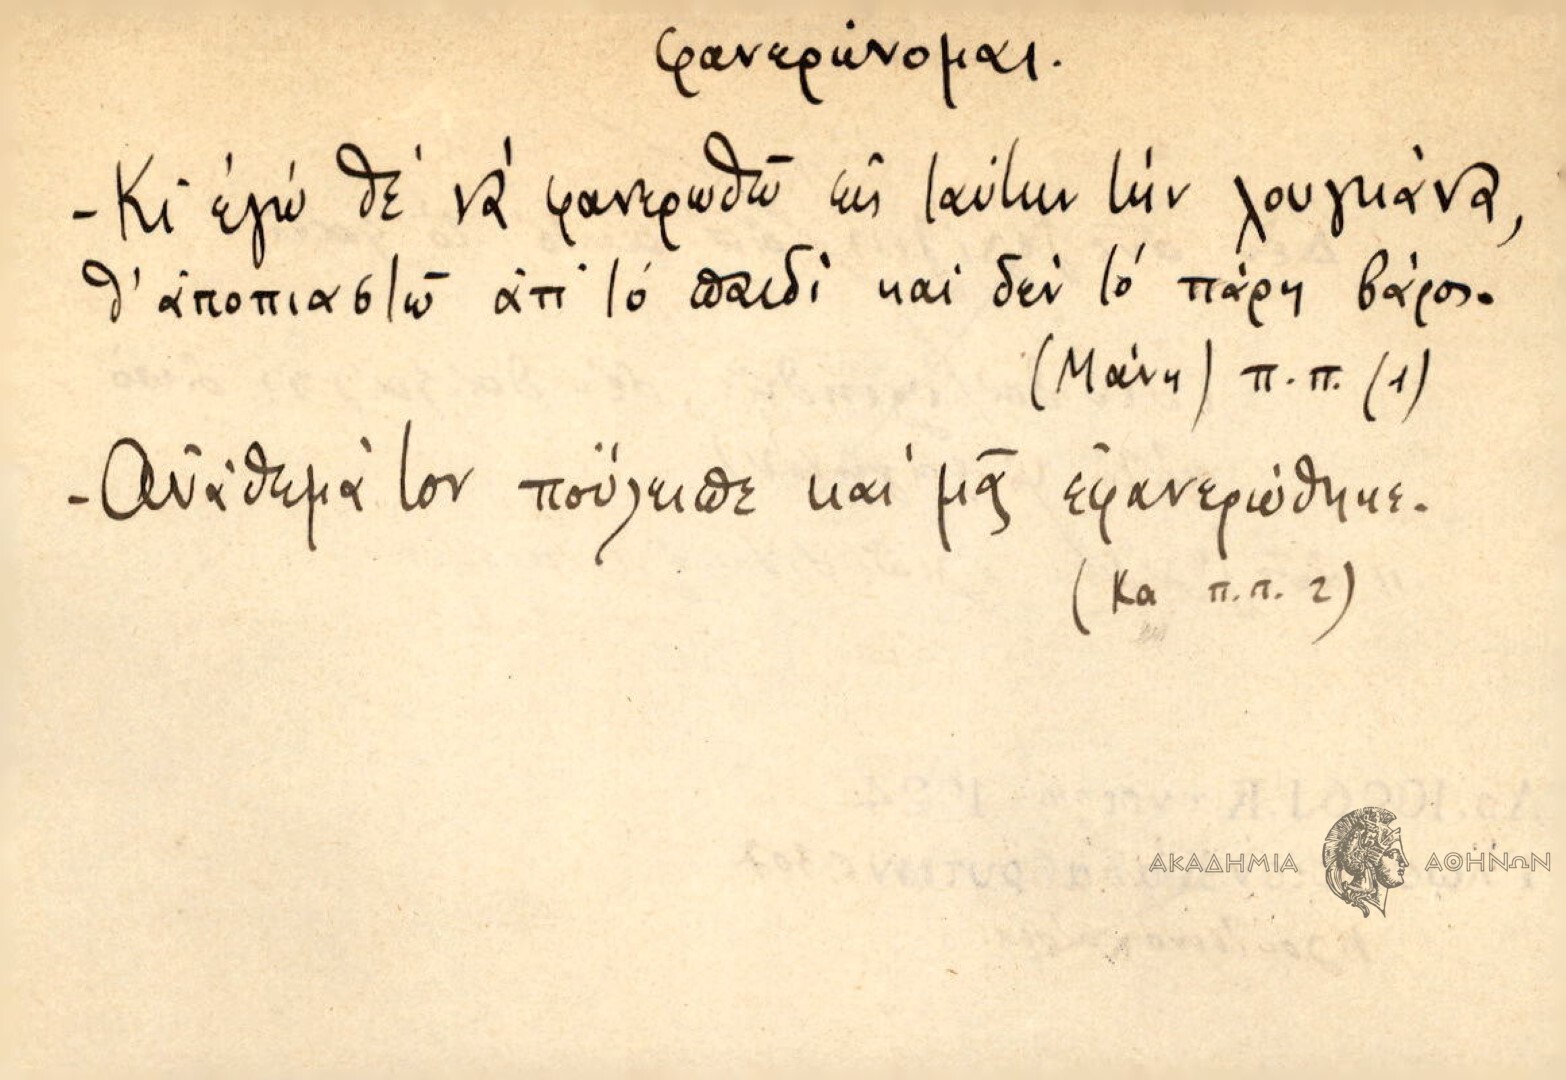 φανερώνομαι.
- Κι ἐγώ θέ νά φανερωθῶ εἰς ταύτην τήν λουγκάνα,
θ' ἀποπιαστῶ ἀπ' τό παιδί καί δέν τό πάρη βάρος.
(Μάνη) π.π. (1)
- Ἀνάθεμά τον πούλειπε καί μᾶς ἐφανερώθηκε.
(Κα π.π. 2)
ΑΚΑΔΗΜΙΑ ΑΘΗΝΩΝ